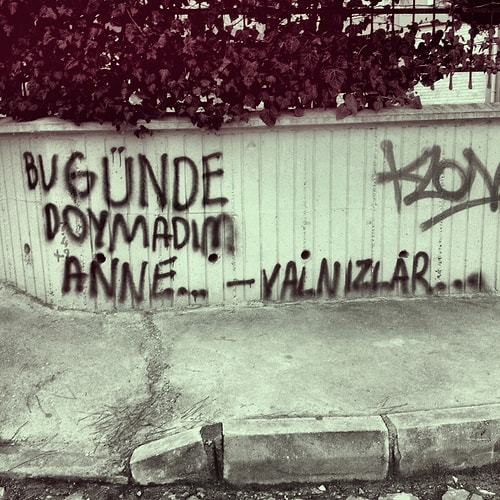 BU GÜNDE
DOYMADIM
ANNE... - YALNIZLAR....
KLON